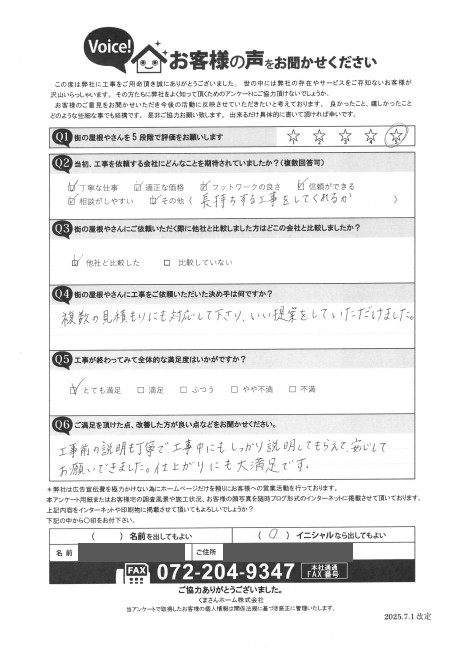 Voice! お客様の声をお聞かせください
この度は弊社に工事をご用命頂き誠にありがとうございました。 世の中には弊社の存在やサービスをご存知ないお客様が
沢山いらっしゃいます。 その方たちに弊社をよく知って頂くためのアンケートにご協力頂けないでしょうか。
お客様のご意見をお聞かせいただき今後の活動に反映させていただきたいと考えております。 良かったこと、嬉しかったこと
どのような些細な事でも結構です。 是非ご協力お願い致します。 出来るだけ具体的に書いて頂ければ幸いです。
Q1 街の屋根やさんを5段階で評価をお願いします ☆ ☆ ☆ ☆ ☆
Q2 当初、工事を依頼する会社にどんなことを期待されていましたか？(複数回答可)
☑ 丁寧な仕事 ☑ 適正な価格 ☑ フットワークの良さ ☑ 信頼ができる
☑ 相談がしやすい ☑ その他 ( 長持ちする工事をしてくれるか )
Q3 街の屋根やさんにご依頼いただく際に他社と比較しました方はどこの会社と比較しましたか？
☑ 他社と比較した □ 比較していない
Q4 街の屋根やさんに工事をご依頼いただいた決め手は何ですか？
複数の見積もりにも対応して下さり、いい提案をしていただけました。
Q5 工事が終わってみて全体的な満足度はいかがですか？
☑ とても満足 □ 満足 □ ふつう □ やや不満 □ 不満
Q6 ご満足を頂けた点、改善した方が良い点などをお聞かせください。
工事前の説明も丁寧で、工事中にもしっかり説明してもらえて、安心して
お願いできました。仕上がりにも大満足です。
＊弊社は広告宣伝費を極力かけない為にホームページだけを頼りにお客様への営業活動を行っております。
本アンケート用紙またはお客様宅の調査風景や施工状況、お客様の顔写真を随時ブログ形式のインターネットに掲載させて頂いております。
上記内容をインターネットや印刷物に掲載させて頂いてもよろしいでしょうか？
下記の中から〇印をお付下さい。
( ) 名前を出してもよい ( 〇 ) イニシャルなら出してもよい
名 前 ご住所
FAX 072-204-9347 本社通通 FAX番号
ご協力ありがとうございました。
くまさんホーム株式会社
当アンケートで取得したお客様の個人情報は関係法規に基づき適正に管理いたします。
2025.7.1 改定